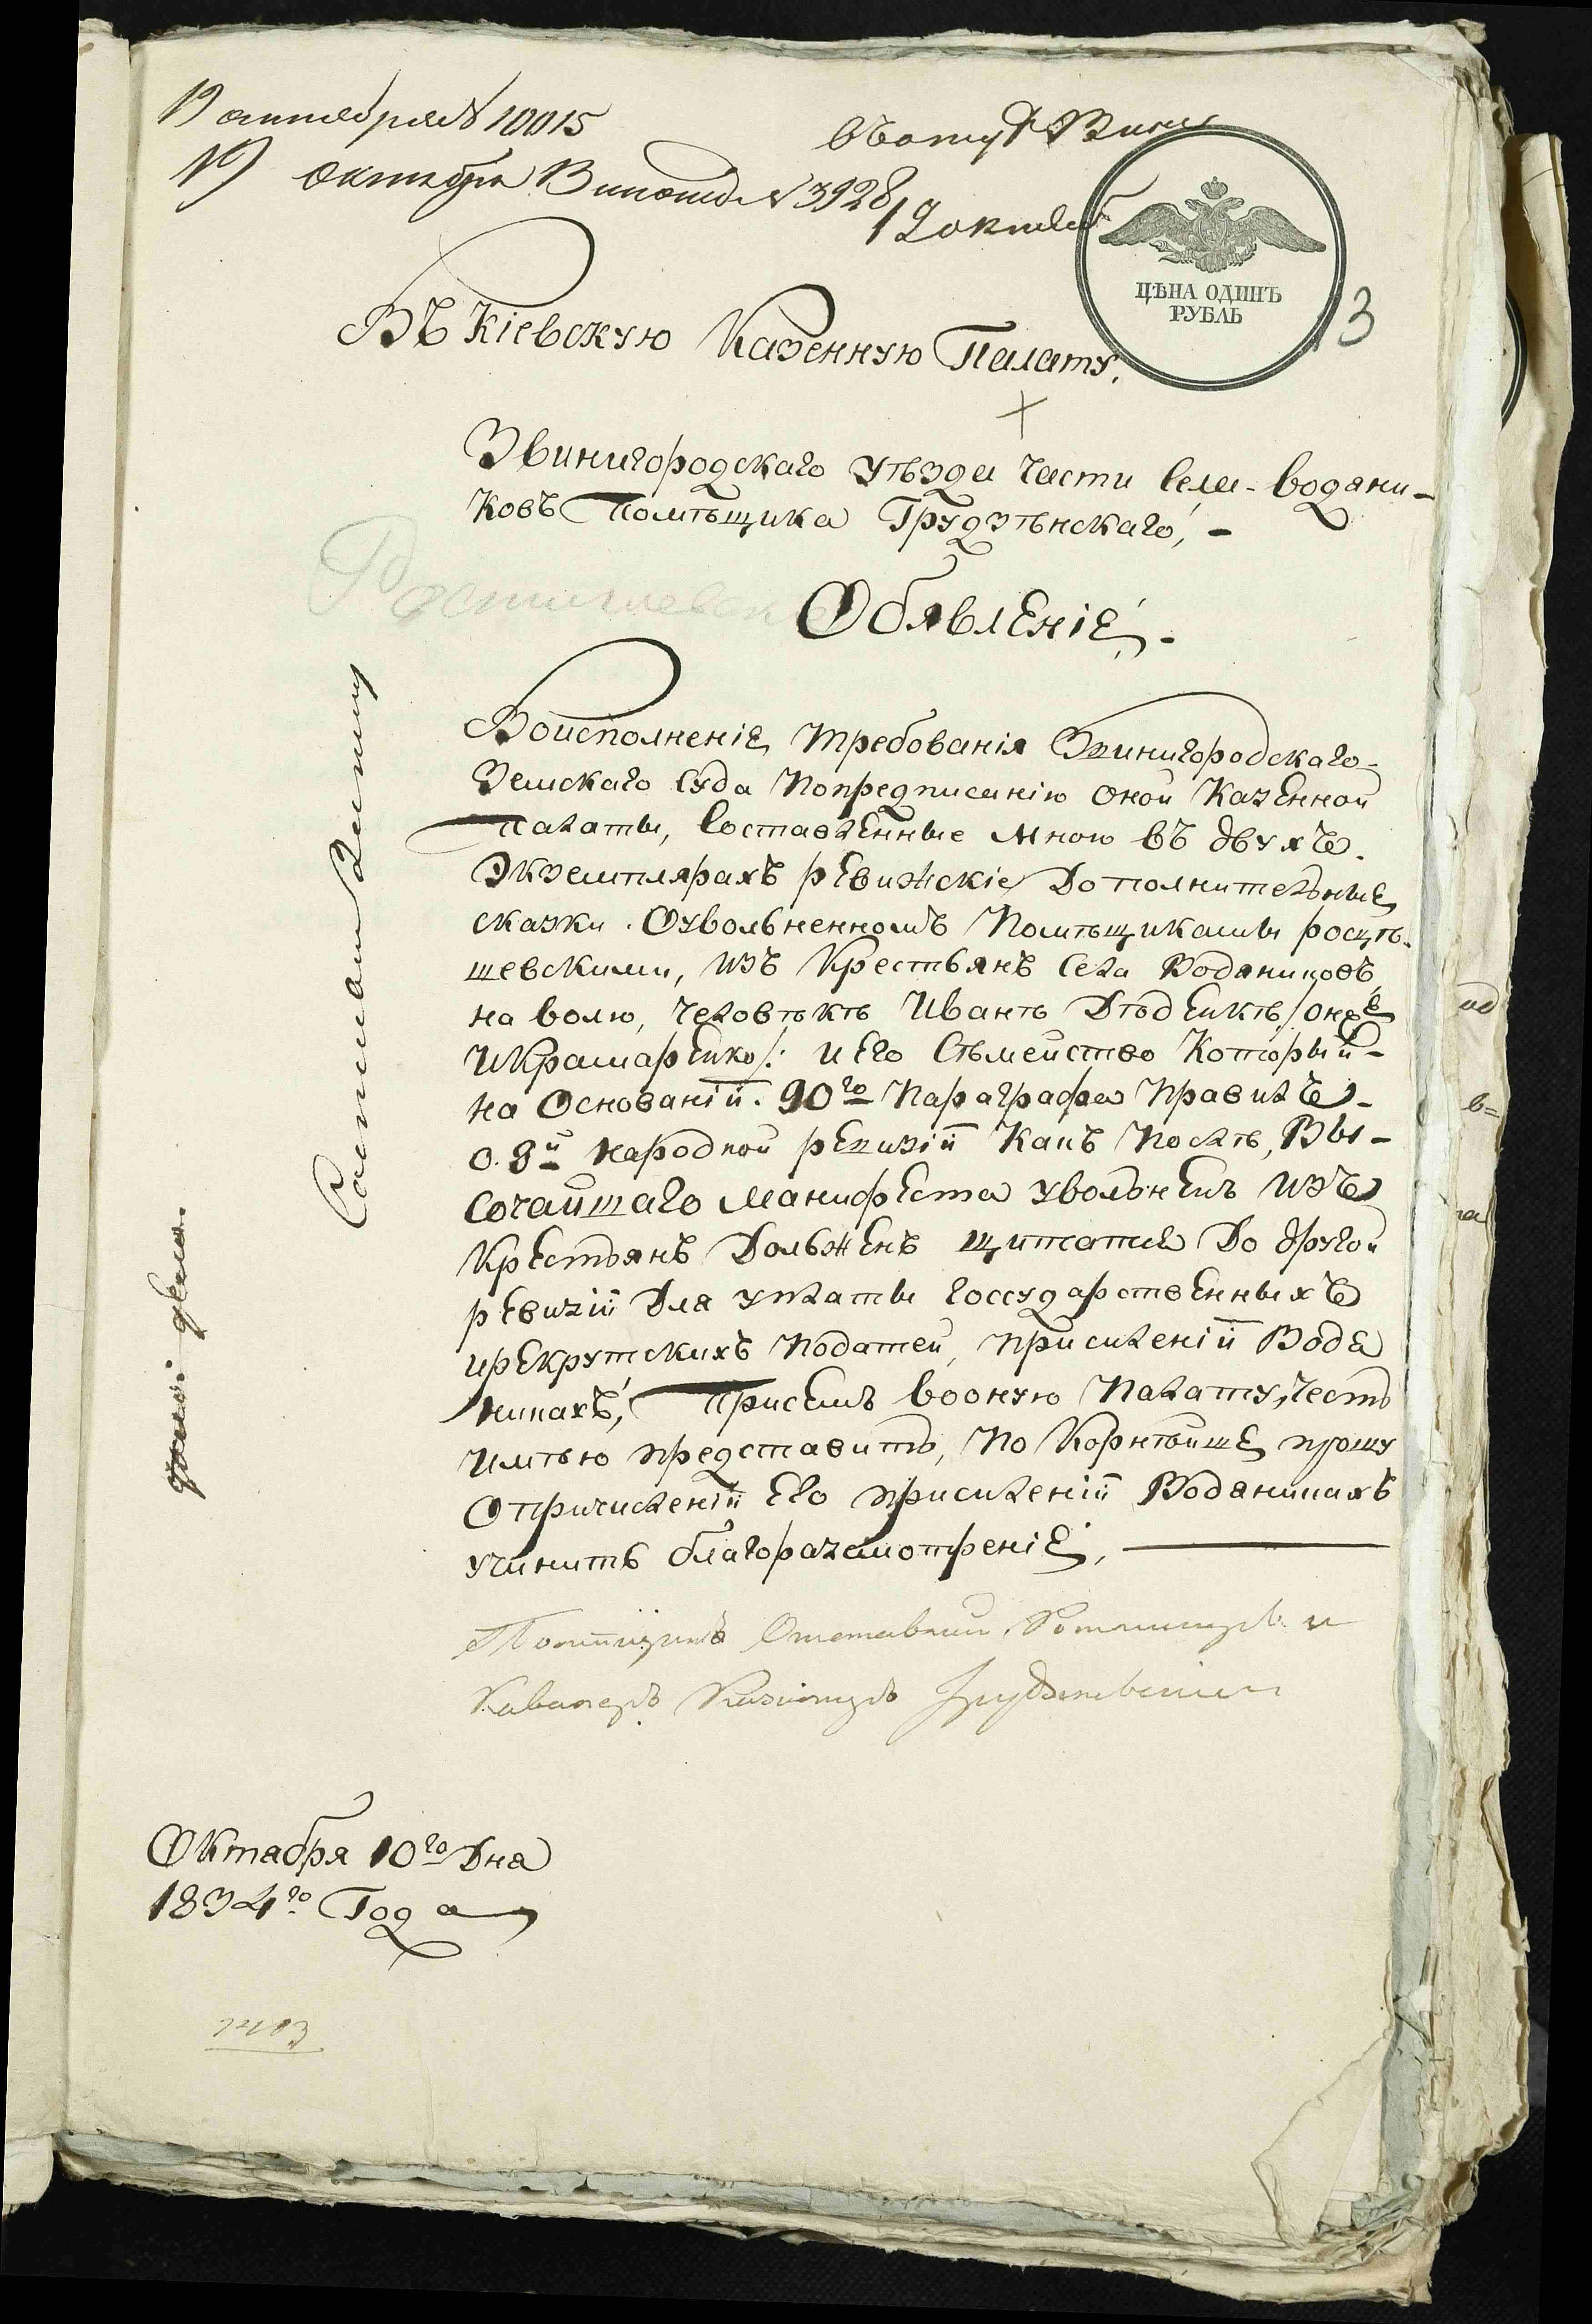 19 октября № 10015
19 октября В № 3928
12 октяб
ЦѢНА ОДИНЪ
РУБЛЬ
13
Въ Кіевскую Казенную Палату,
Звинигородскаго уѣзда части села водяни-
ковъ помѣщика Грудзѣнскаго, -
Обявленіе, -
Воисполненіе требованія Звинигородскаго
Земскаго Суда попредписанію оной Казенной
палаты, Составленные мною въ двухъ
Экземплярахъ ревижскіе дополнительные
сказки Оувольненномъ Помѣщиками росцѣ-
шевскими, изъ Крестьянъ Села Водяниковъ
на волю, человѣкѣ Иванѣ Дѣденкѣ /онже
иКрамаренко/: иего Сѣмейство Который-
на Основаніи. 90го Параграфа Правилъ
о. 8й народной ревизіи Какъ послѣ, Вы-
сочайшаго манифеста уволненъ изъ
Крестьянъ Дольженъ щитатся До другой
ревизіи Для уплаты Госсударственныхъ
ирекрутскихъ Податей, присиленіи Водя
никахъ, присемъ вооную Палату, честь
имѣю представить, По Корнѣише прошу
Опричисленіи Его присиленіи Водяникахъ
учинить благоразсмотреніе,
Помѣщикъ Отставный Ротмистръ и
Кавалеръ
Октября 10го Дня
1834го Года